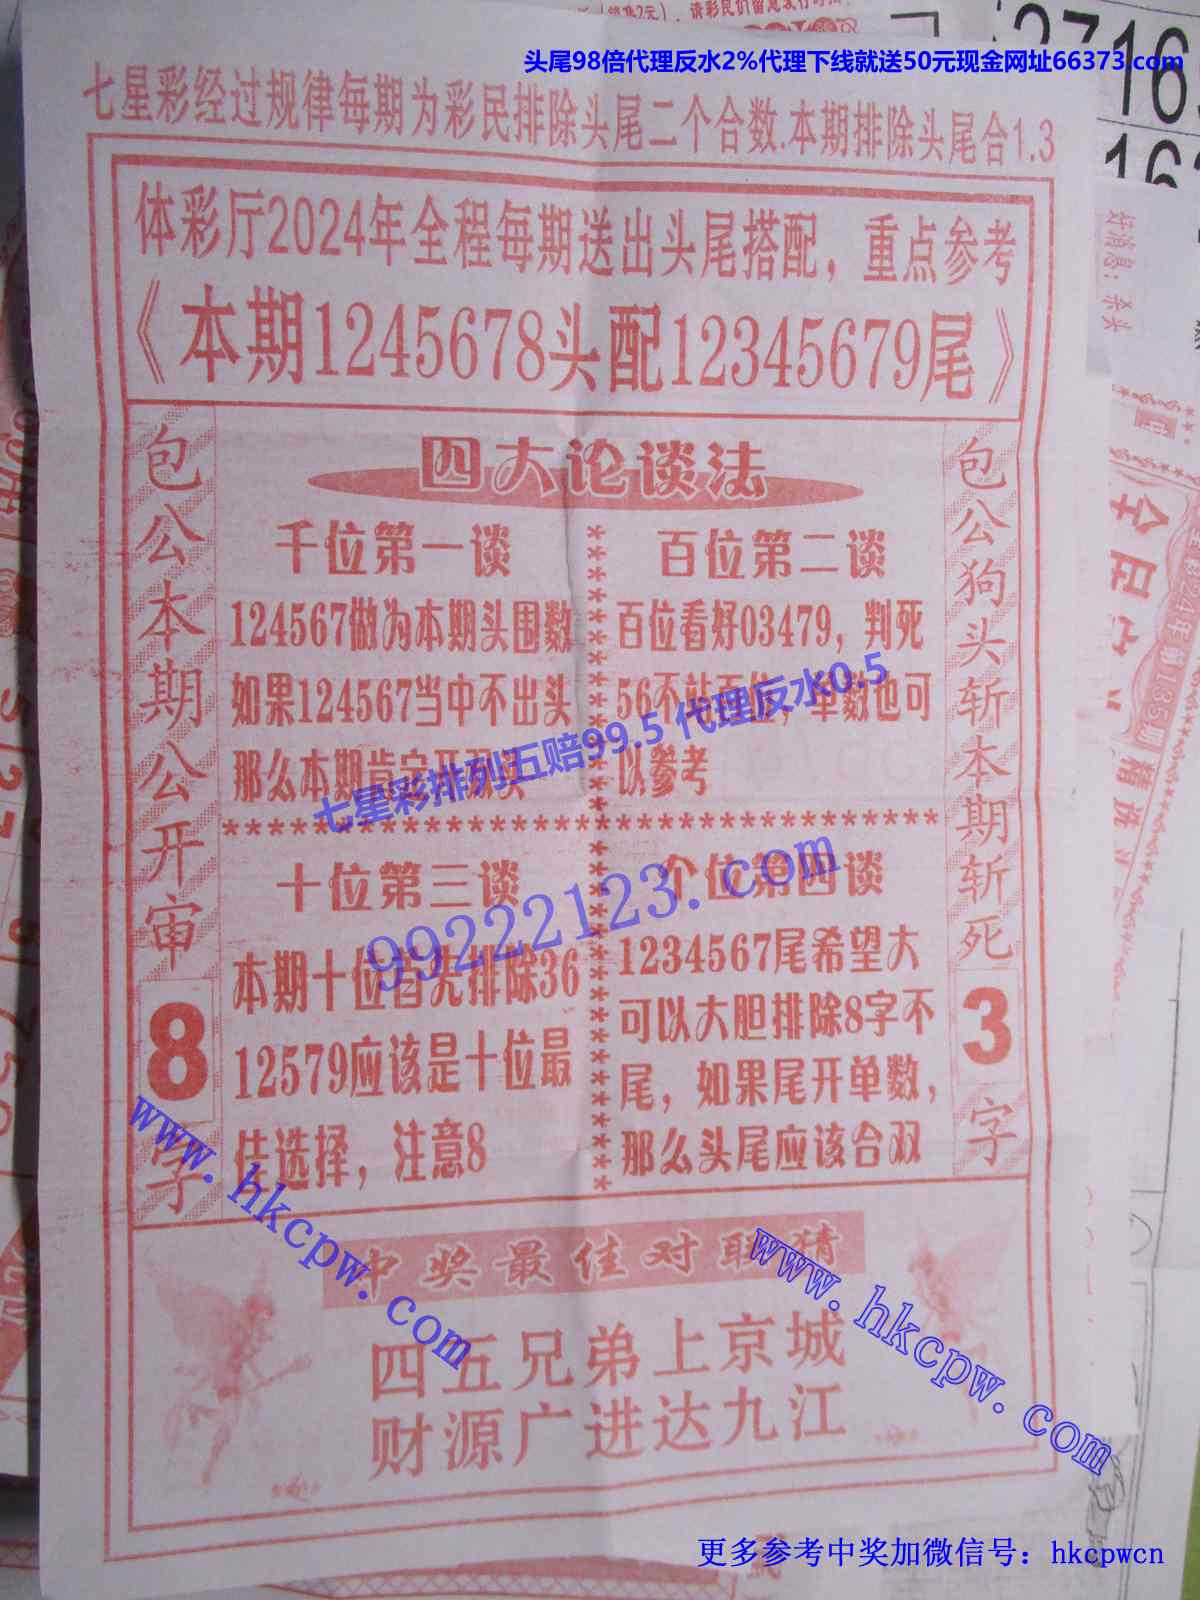 头尾98倍代理反水2%代理下线就送50元现金网址66373.com
七星彩经过规律每期为彩民排除头尾二个合数.本期排除头尾合1.3
体彩厅2024年全程每期送出头尾搭配，重点参考
《本期1245678头配12345679尾》
包公本期公开审
8
字
四大论谈法
千位第一谈
124567做为本期头围数
如果124567当中不出头
那么本期肯定开双头
百位第二谈
百位看好03479，判死
56不站百位，单数也可
以参考
七星彩排列五赔99.5 代理反水0.5
十位第三谈
本期十位首先排除36
12579应该是十位最
佳选择，注意8
个位第四谈
1234567尾希望大
可以大胆排除8字不
尾，如果尾开单数，
那么头尾应该合双
99222123.com
包公狗头斩本期斩死
3
字
中奖最佳对联猜
四五兄弟上京城
财源广进达九江
www.hkcpw.com
www.hkcpw.com
好消息：杀头
精选
更多参考中奖加微信号：hkcpwcn